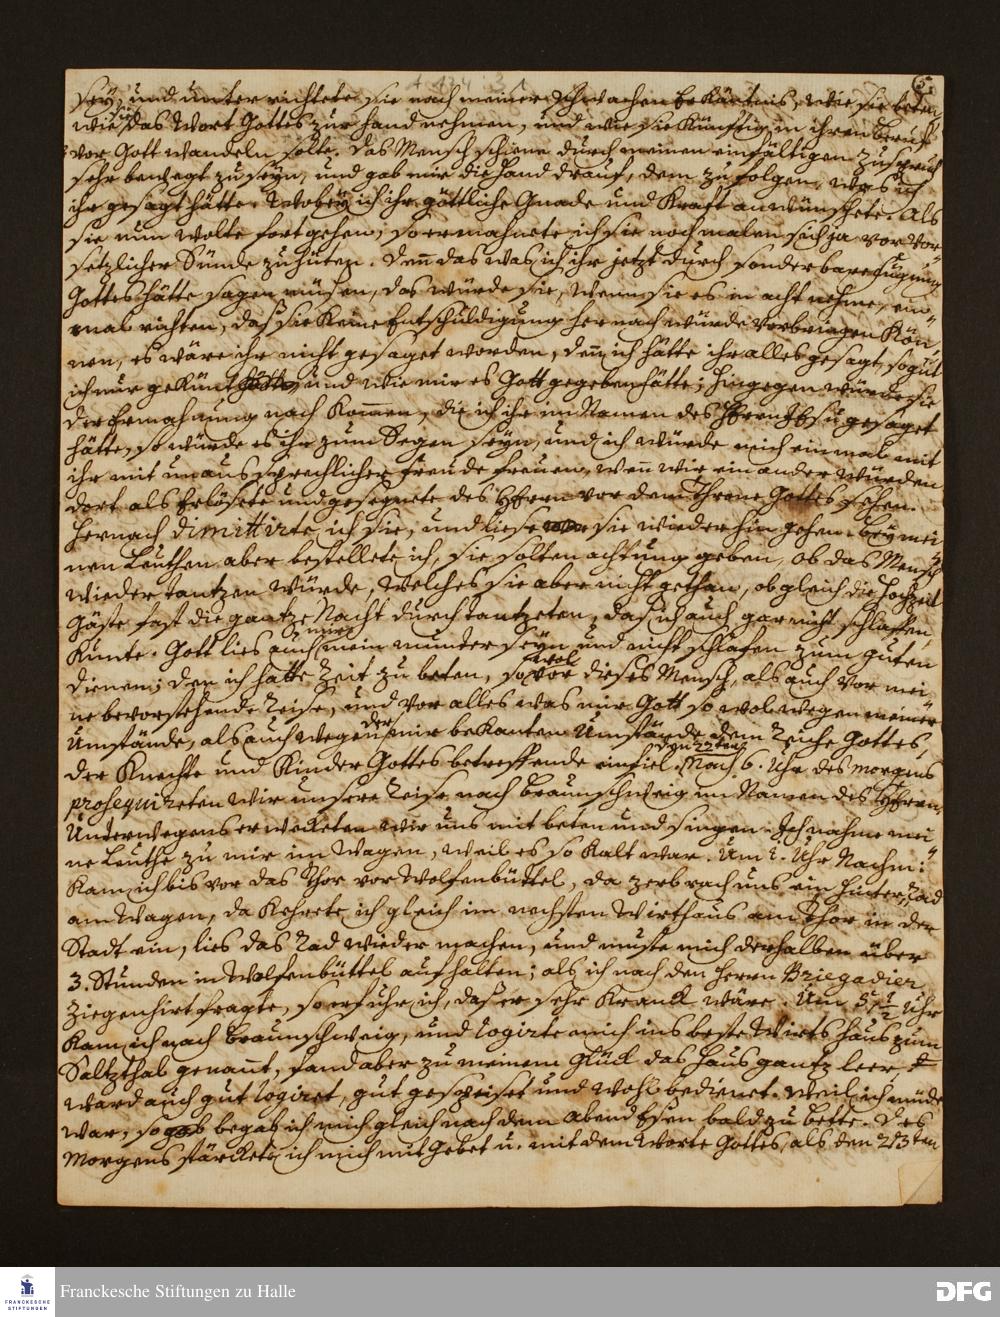 6.
sey, und unterrichtete sie nach meiner schwachen Erkäntnis, wie sie beten,
wie sie das Wort Gottes zur Hand nehmen, und wie sie künftig in ihren Beruff
vor Gott wandeln solte. Das Mensch schiene durch meinen einfältigen Zuspruch
sehr bewegt zu seyn, und gab mir die Hand drauf, dem zu folgen, was ich
ihr gesagt hätte. Wobey ich ihr göttliche Gnade und Kraft anwünschete. Als
sie nun wolte fortgehen, so ermahnete ich sie nochmalen sich ja vor vor-
setzlicher Sünde zu hüten. Denn das was ich ihr jetzt durch sonderbare Fügung
Gottes hätte sagen müsen, das würde sie, wenn sie es in acht nehme, ein-
mal richten, daß sie keine Entschuldigung hernach würde vorbringen kön-
nen, es wäre ihr nicht gesaget worden, denn ich hätte ihr alles gesagt, so gut
ich nur gekünt und wie mir es Gott gegeben hätte; hingegen würde sie
der Ermahnung nach kommen, die ich ihr im Namen des HErrn JEsu gesaget
hätte, so würde es ihr zum Segen seyn, und ich würde mich einmal mit
ihr mit unaussprechlicher Freude freuen, wenn wir einander würden
dort als Erlösete und gesegnete des HErrn vor dem Throne Gottes sehen.
Hernach dimittirte ich sie, und liese sie wieder hingehen. Bey mei-
nen Leuthen aber bestellete ich, sie solten achtung geben, ob das Mensch
wieder tantzen würde, welches sie aber nicht gethan, obgleich die Hochzeit
Gäste fast die gantze Nacht durch tantzeten, daß ich auch gar nicht schlaffen
kunte. Gott lies auch mir mein munter seyn und nicht schlafen zum guten
dienen; den ich hatte Zeit zu beten, so wol vor dieses Mensch, als auch vor mei-
ne bevorstehende Reise, und vor alles was mir Gott so wol wegen meiner
Umstände, als auch wegen der mir bekanten Umstände dem Reiche Gottes,
der Knechte und Kinder Gottes betreffende einfiel. den 22ten Nach 6. Uhr des morgens
prosequireten wir unsere Reise nach Braunschweig im Namen des HErrn,
Unterwegens erweckten wir uns mit beten und singen. Ich nahme mei-
ne Leuthe zu mir im Wagen, weil es so kalt war. Um 1. Uhr Nachm:
kam ich bis vor das Thor vor Wolfenbüttel, da zerbrach uns ein Hinter Rad
am Wagen, da kehrete ich gleich im nechsten Wirthaus am Thor in der
Stadt ein, lies das Rad wieder machen, und muste mich derhalben über
3. Stunden in Wolfenbüttel aufhalten; als ich nach den Herrn Briegadier
Ziegenhirt fragte, so erfuhr ich, daß er sehr kranck wäre. Um 5 1/2 Uhr
kam ich nach Braunschweig, und logirte mich ins beste Wirtshaus zum
Saltzthal genannt, fand aber zu meinem Glück das Haus gantz leer,
ward auch gut logiret, gut gespeiset und wohl bedienet. Weil ich müde
war, so begab ich mich gleich nach dem Abend Esen bald zu bette. Des
Morgens stärckete ich mich mit Gebet u. mit dem Worte Gottes, als den 23ten
Franckesche Stiftungen zu Halle
FRANCKESCHE
STIFTUNGEN
DFG